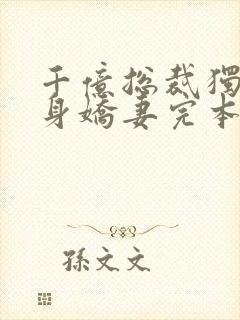 千億总裁獨
身嬌妻完本
孫文文